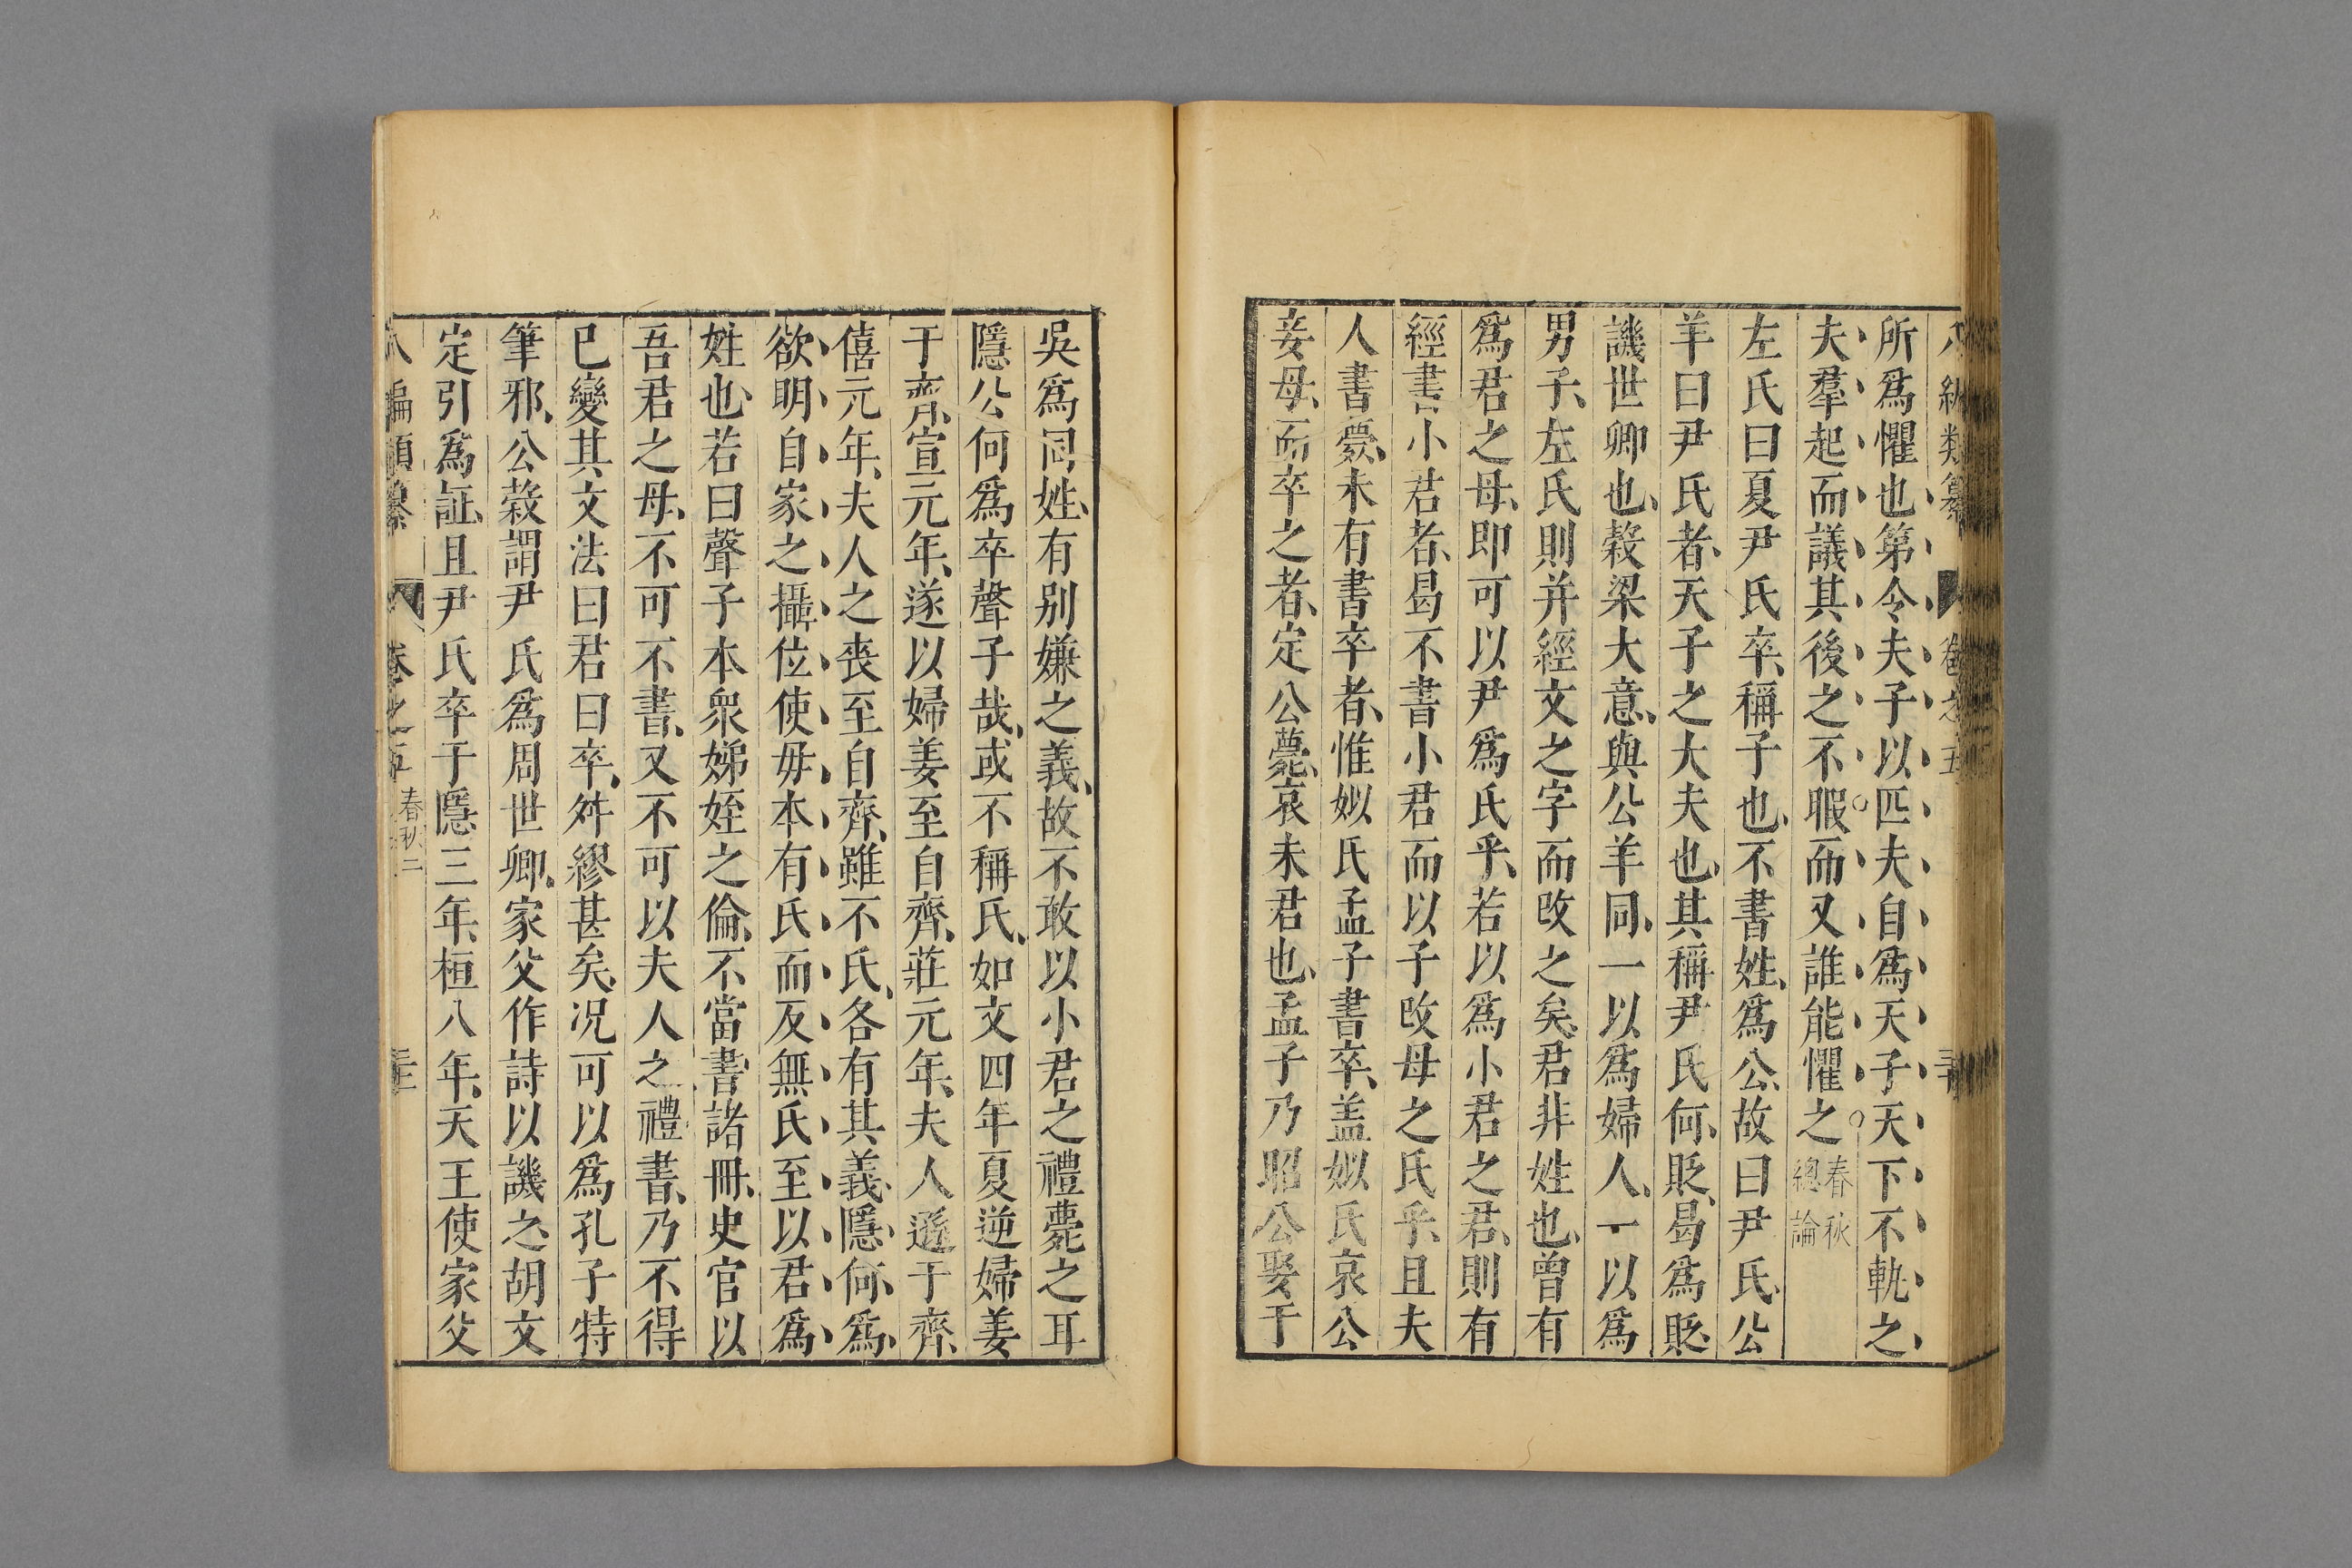 八編類纂 卷之五
所爲懼也第令夫子以匹夫自爲天子天下不軌之
夫羣起而議其後之不暇而又誰能懼之春秋總論
左氏曰夏尹氏卒稱子也不書姓爲公故曰尹氏公
羊曰尹氏者天子之大夫也其稱尹氏何貶曷爲貶
譏世卿也榖梁大意與公羊同一以爲婦人一以爲
男子左氏則并經文之字而改之矣君非姓也曾有
爲君之母即可以尹爲氏乎若以爲小君之君則有
經書小君者曷不書小君而以子改母之氏乎且夫
人書薨未有書卒者惟姒氏孟子書卒盖姒氏哀公
妾母而卒之者定公薨哀未君也孟子乃昭公娶于
吳爲同姓有别嫌之義故不敢以小君之禮薨之耳
隱公何爲卒聲子哉或不稱氏如文四年夏逆婦姜
于齊宣元年遂以婦姜至自齊莊元年夫人遜于齊
僖元年夫人之喪至自齊雖不氏各有其義隱何爲
欲明自家之攝位使毋本有氏而反無氏至以君爲
姓也若曰聲子本衆娣姪之倫不當書諸冊史官以
吾君之母不可不書又不可以夫人之禮書乃不得
已變其文法曰君曰卒舛繆甚矣况可以爲孔子特
筆邪公榖謂尹氏爲周世卿家父作詩以譏之胡文
定引爲証且尹氏卒于隱三年桓八年天王使家父
八編類纂 卷之五 春秋二